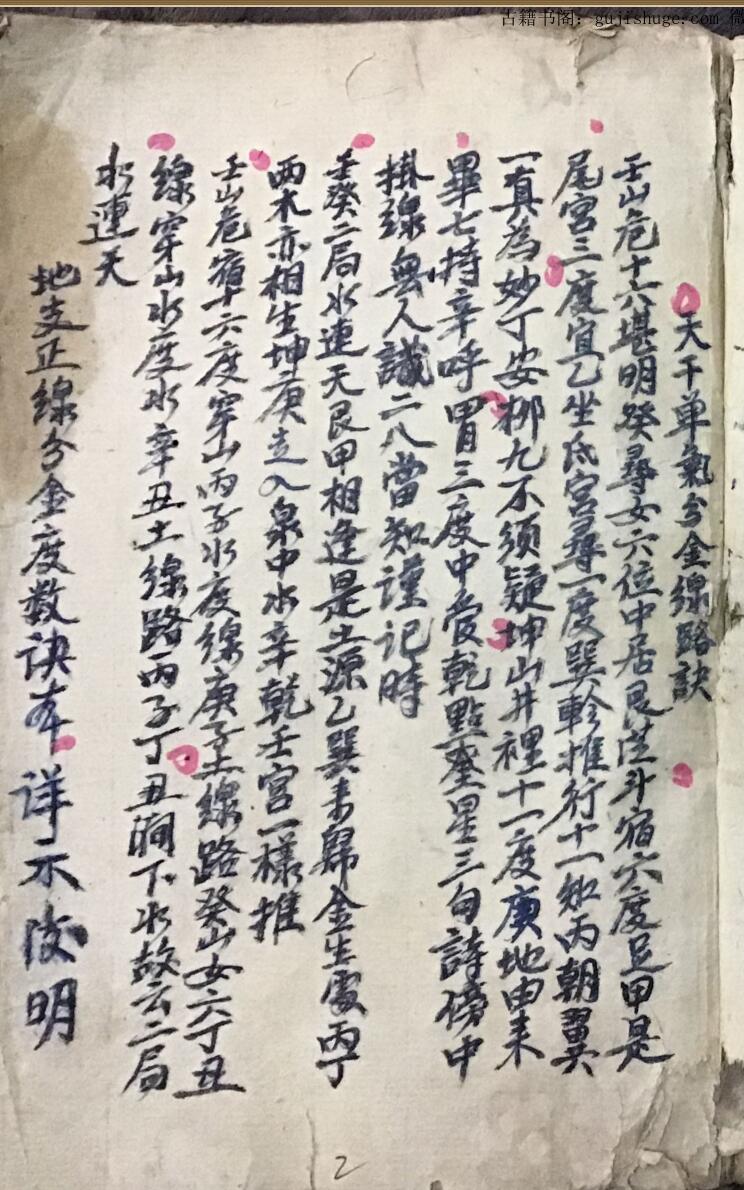 古籍书阁：gujishuge.com 微
天干单氣分金線路訣
壬山危十六堪明癸尋女六位中居艮落斗宿六度足甲是
尾宮三度宜乙坐氐宮尋一度巽軫推行十一知丙朝翼
一真為妙丁安柳九不須疑坤山井裡十一度庚地由来
畢七持辛呼胃三度中受乾點奎星三句詩傍中
掛線無人識二八當知謹记時
壬癸二局水連天艮甲相逢是土源乙巽未歸金生處丙丁
两木亦相生坤庚走入泉中水辛乾壬宮一樣推
壬山危宿十六度穿山丙子水度線庚子土線路癸山女六丁丑
線穿山水度水辛丑土線路丙子丁丑澗下水故云二局
水連天
地支正線分金度数訣年详示後明
2